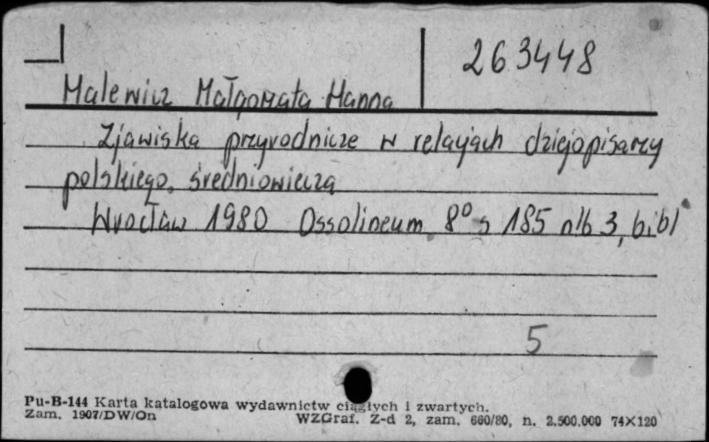 263448
Malewicz Małgorzata Hanna
Zjawiska przyrodnicze w relacjach dziejopisarzy
polskiego średniowiecza
Wrocław 1980 Ossolineum 8° s 185 nlb 3, bibl
5
Pu-B-144 Karta katalogowa wydawnictw ciągłych i zwartych.
Zam. 1907/DW/On WZGraf. Z-d 2, zam. 660/80, n. 2.500.000 74×120